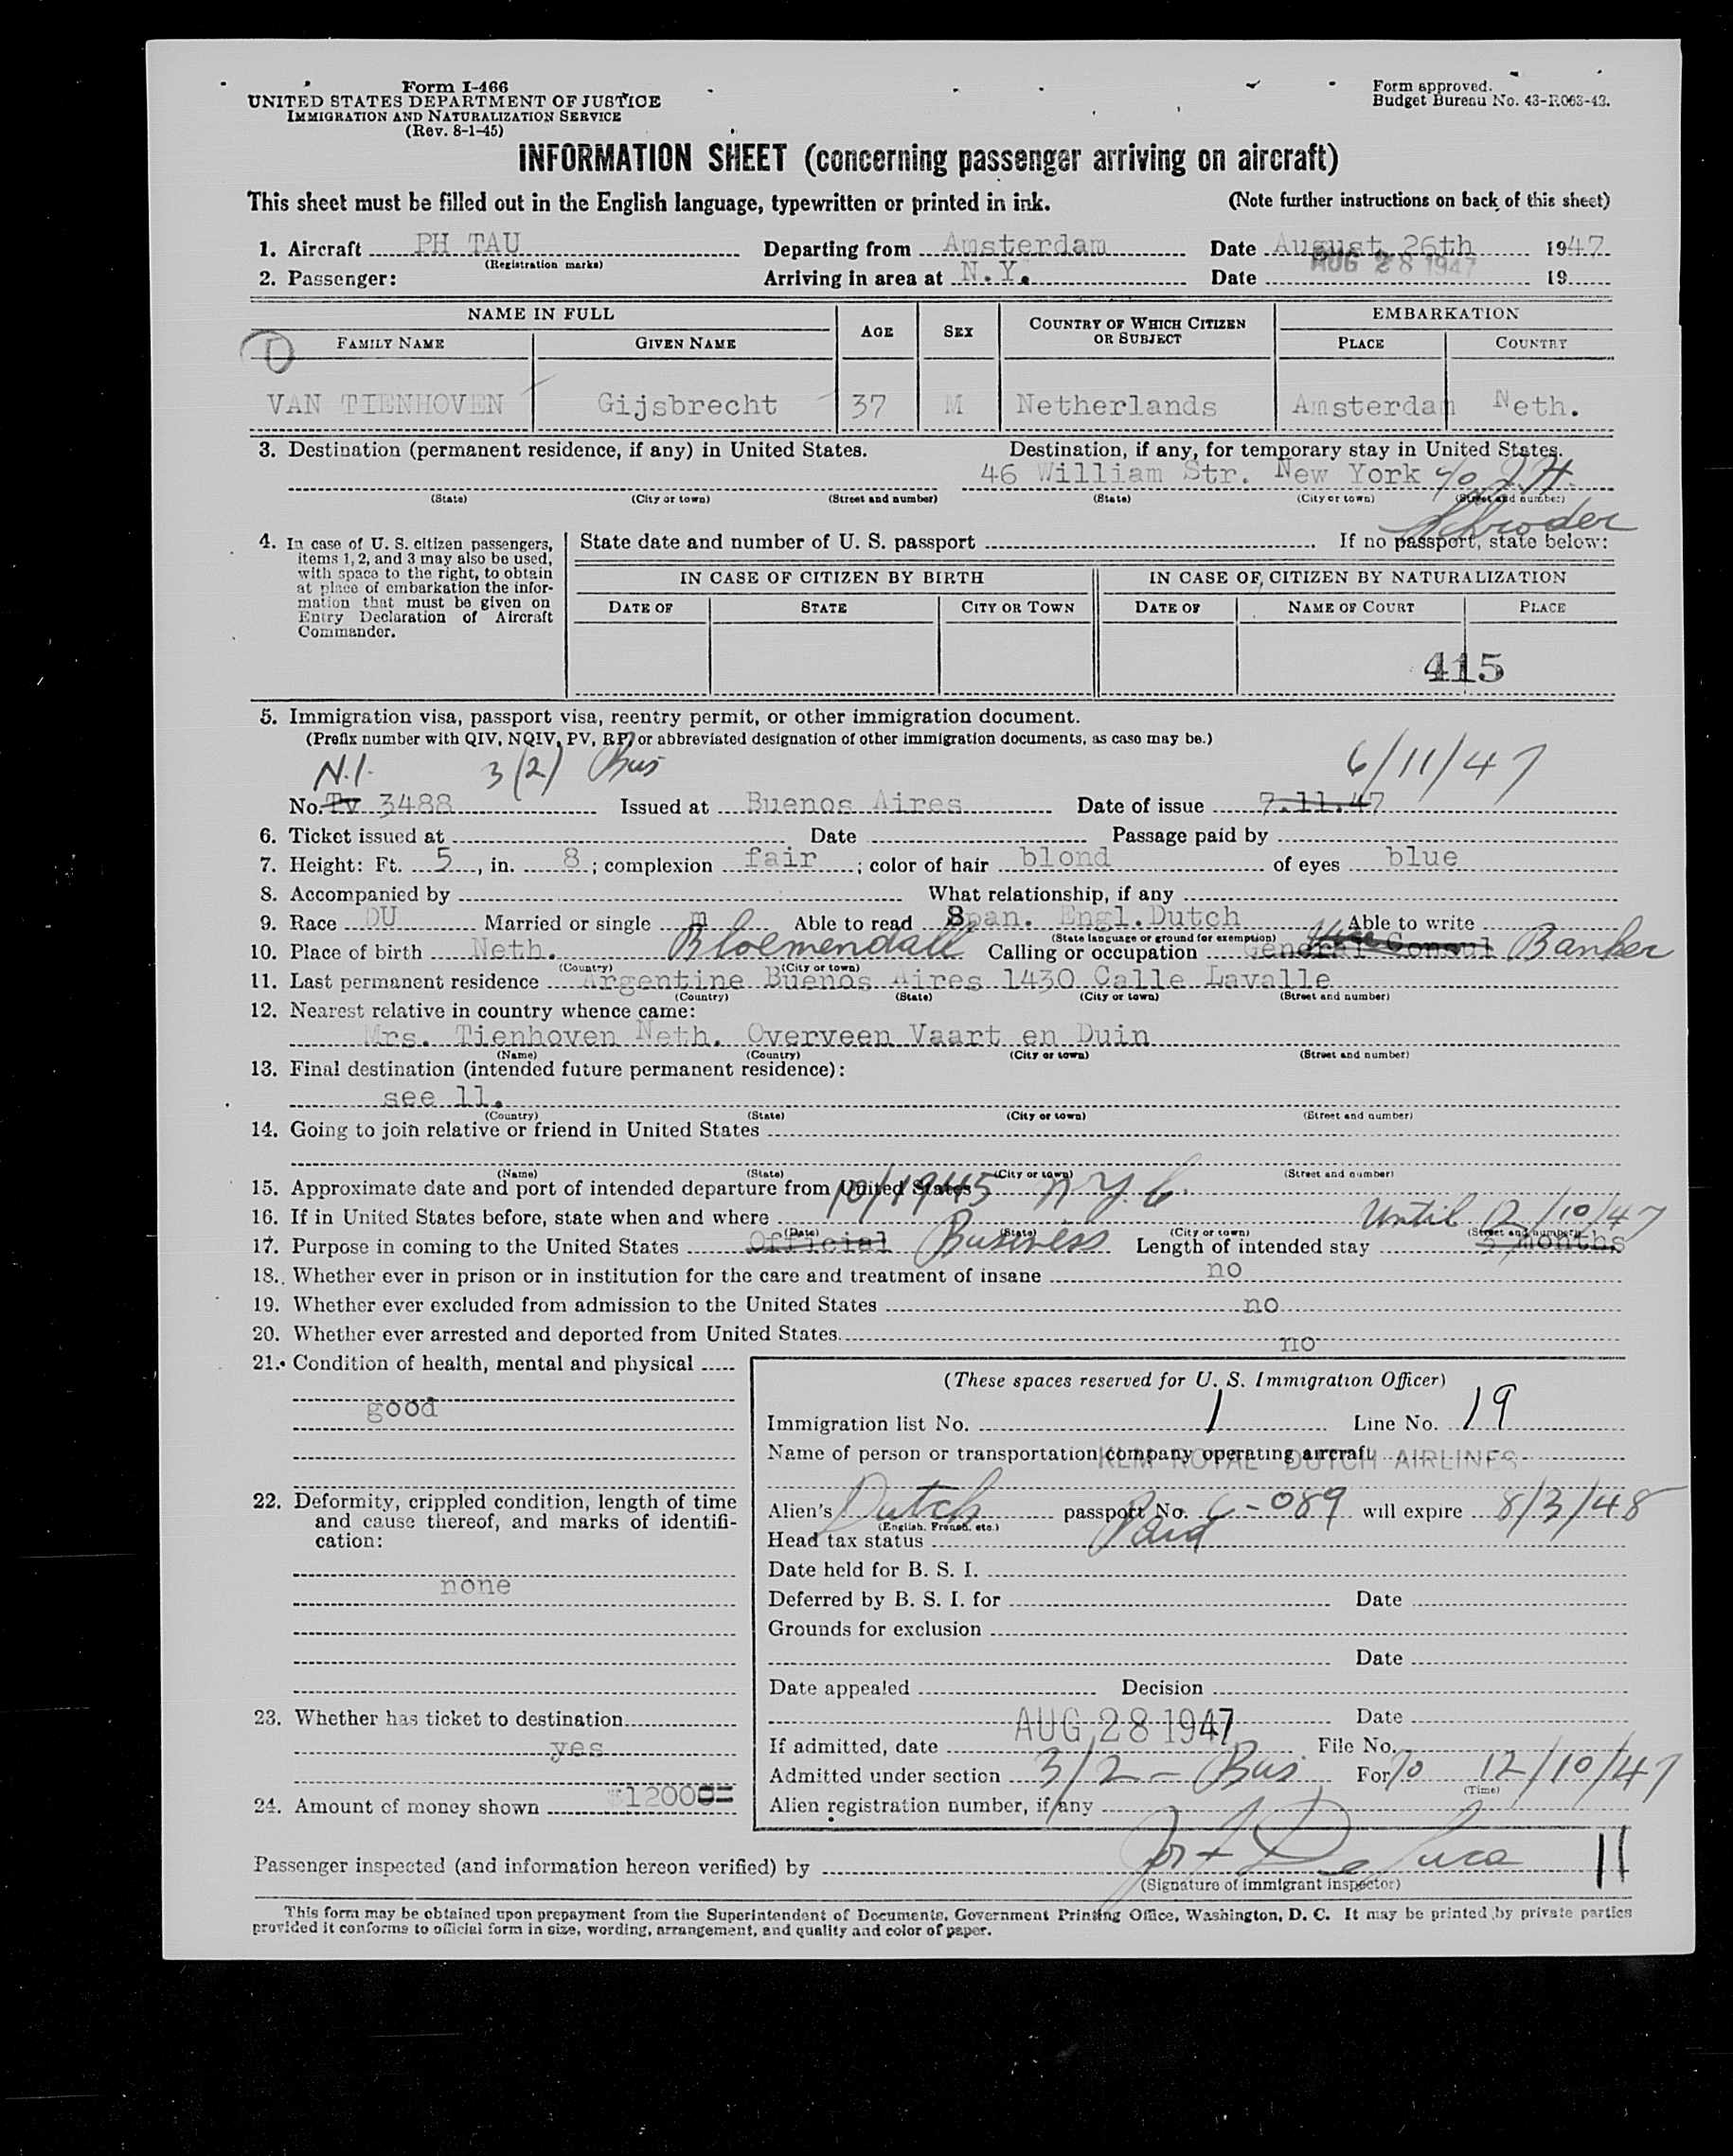 Form I-466
UNITED STATES DEPARTMENT OF JUSTICE
IMMIGRATION AND NATURALIZATION SERVICE
(Rev. 8-1-45)
Form approved.
Budget Bureau No. 43-R063-43.
INFORMATION SHEET (concerning passenger arriving on aircraft)
This sheet must be filled out in the English language, typewritten or printed in ink. (Note further instructions on back of this sheet)
1. Aircraft PH TAU Departing from Amsterdam Date August 26th 1947
(Registration marks) AUG 28 1947
2. Passenger: Arriving in area at N.Y. Date 19
NAME IN FULL AGE SEX COUNTRY OF WHICH CITIZEN OR SUBJECT EMBARKATION
FAMILY NAME GIVEN NAME PLACE COUNTRY
VAN TIENHOVEN Gijsbrecht 37 M Netherlands Amsterdam Neth.
3. Destination (permanent residence, if any) in United States. Destination, if any, for temporary stay in United States.
46 William Str. New York c/o J.H.
(State) (City or town) (Street and number) (State) (City or town) (Street and number)
Schroder
4. In case of U. S. citizen passengers, items 1, 2, and 3 may also be used, with space to the right, to obtain at place of embarkation the information that must be given on Entry Declaration of Aircraft Commander.
State date and number of U. S. passport If no passport, state below:
IN CASE OF CITIZEN BY BIRTH IN CASE OF CITIZEN BY NATURALIZATION
DATE OF STATE CITY OR TOWN DATE OF NAME OF COURT PLACE
415
5. Immigration visa, passport visa, reentry permit, or other immigration document.
(Prefix number with QIV, NQIV, PV, RP, or abbreviated designation of other immigration documents, as case may be.)
N.I. 3(2) Bus 6/11/47
No. Pv 3488 Issued at Buenos Aires Date of issue 7.11.47
6. Ticket issued at Date Passage paid by
7. Height: Ft. 5, in. 8; complexion fair; color of hair blond of eyes blue
8. Accompanied by What relationship, if any
9. Race DU Married or single m Able to read Span. Engl. Dutch Able to write
(State language or ground for exemption)
10. Place of birth Neth. Bloemendall Calling or occupation General Consul Banker
(Country) (City or town)
11. Last permanent residence Argentine Buenos Aires 1430 Calle Lavalle
(Country) (State) (City or town) (Street and number)
12. Nearest relative in country whence came:
Mrs. Tienhoven Neth. Overveen Vaart en Duin
(Name) (Country) (City or town) (Street and number)
13. Final destination (intended future permanent residence):
see 11.
(Country) (State) (City or town) (Street and number)
14. Going to join relative or friend in United States
(Name) (State) (City or town) (Street and number)
15. Approximate date and port of intended departure from United States
16. If in United States before, state when and where 10/1945 N.Y.C.
(Date) (State) (City or town) (Street and number)
Until 12/10/47
17. Purpose in coming to the United States Official Business Length of intended stay 3 months
18. Whether ever in prison or in institution for the care and treatment of insane no
19. Whether ever excluded from admission to the United States no
20. Whether ever arrested and deported from United States no
21. Condition of health, mental and physical
good
22. Deformity, crippled condition, length of time and cause thereof, and marks of identification:
none
23. Whether has ticket to destination
yes
24. Amount of money shown $1200
(These spaces reserved for U. S. Immigration Officer)
Immigration list No. 1 Line No. 19
Name of person or transportation company operating aircraft
KLM ROYAL DUTCH AIRLINES
Alien's Dutch passport No. C-089 will expire 8/3/48
(English, French, etc.)
Head tax status Paid
Date held for B. S. I.
Deferred by B. S. I. for Date
Grounds for exclusion
Date
Date appealed Decision
Date
If admitted, date AUG 28 1947 File No.
Admitted under section 3/2 - Bus. For To 12/10/47
(Time)
Alien registration number, if any
Passenger inspected (and information hereon verified) by 11
(Signature of immigrant inspector)
This form may be obtained upon prepayment from the Superintendent of Documents, Government Printing Office, Washington, D. C. It may be printed by private parties
provided it conforms to official form in size, wording, arrangement, and quality and color of paper.